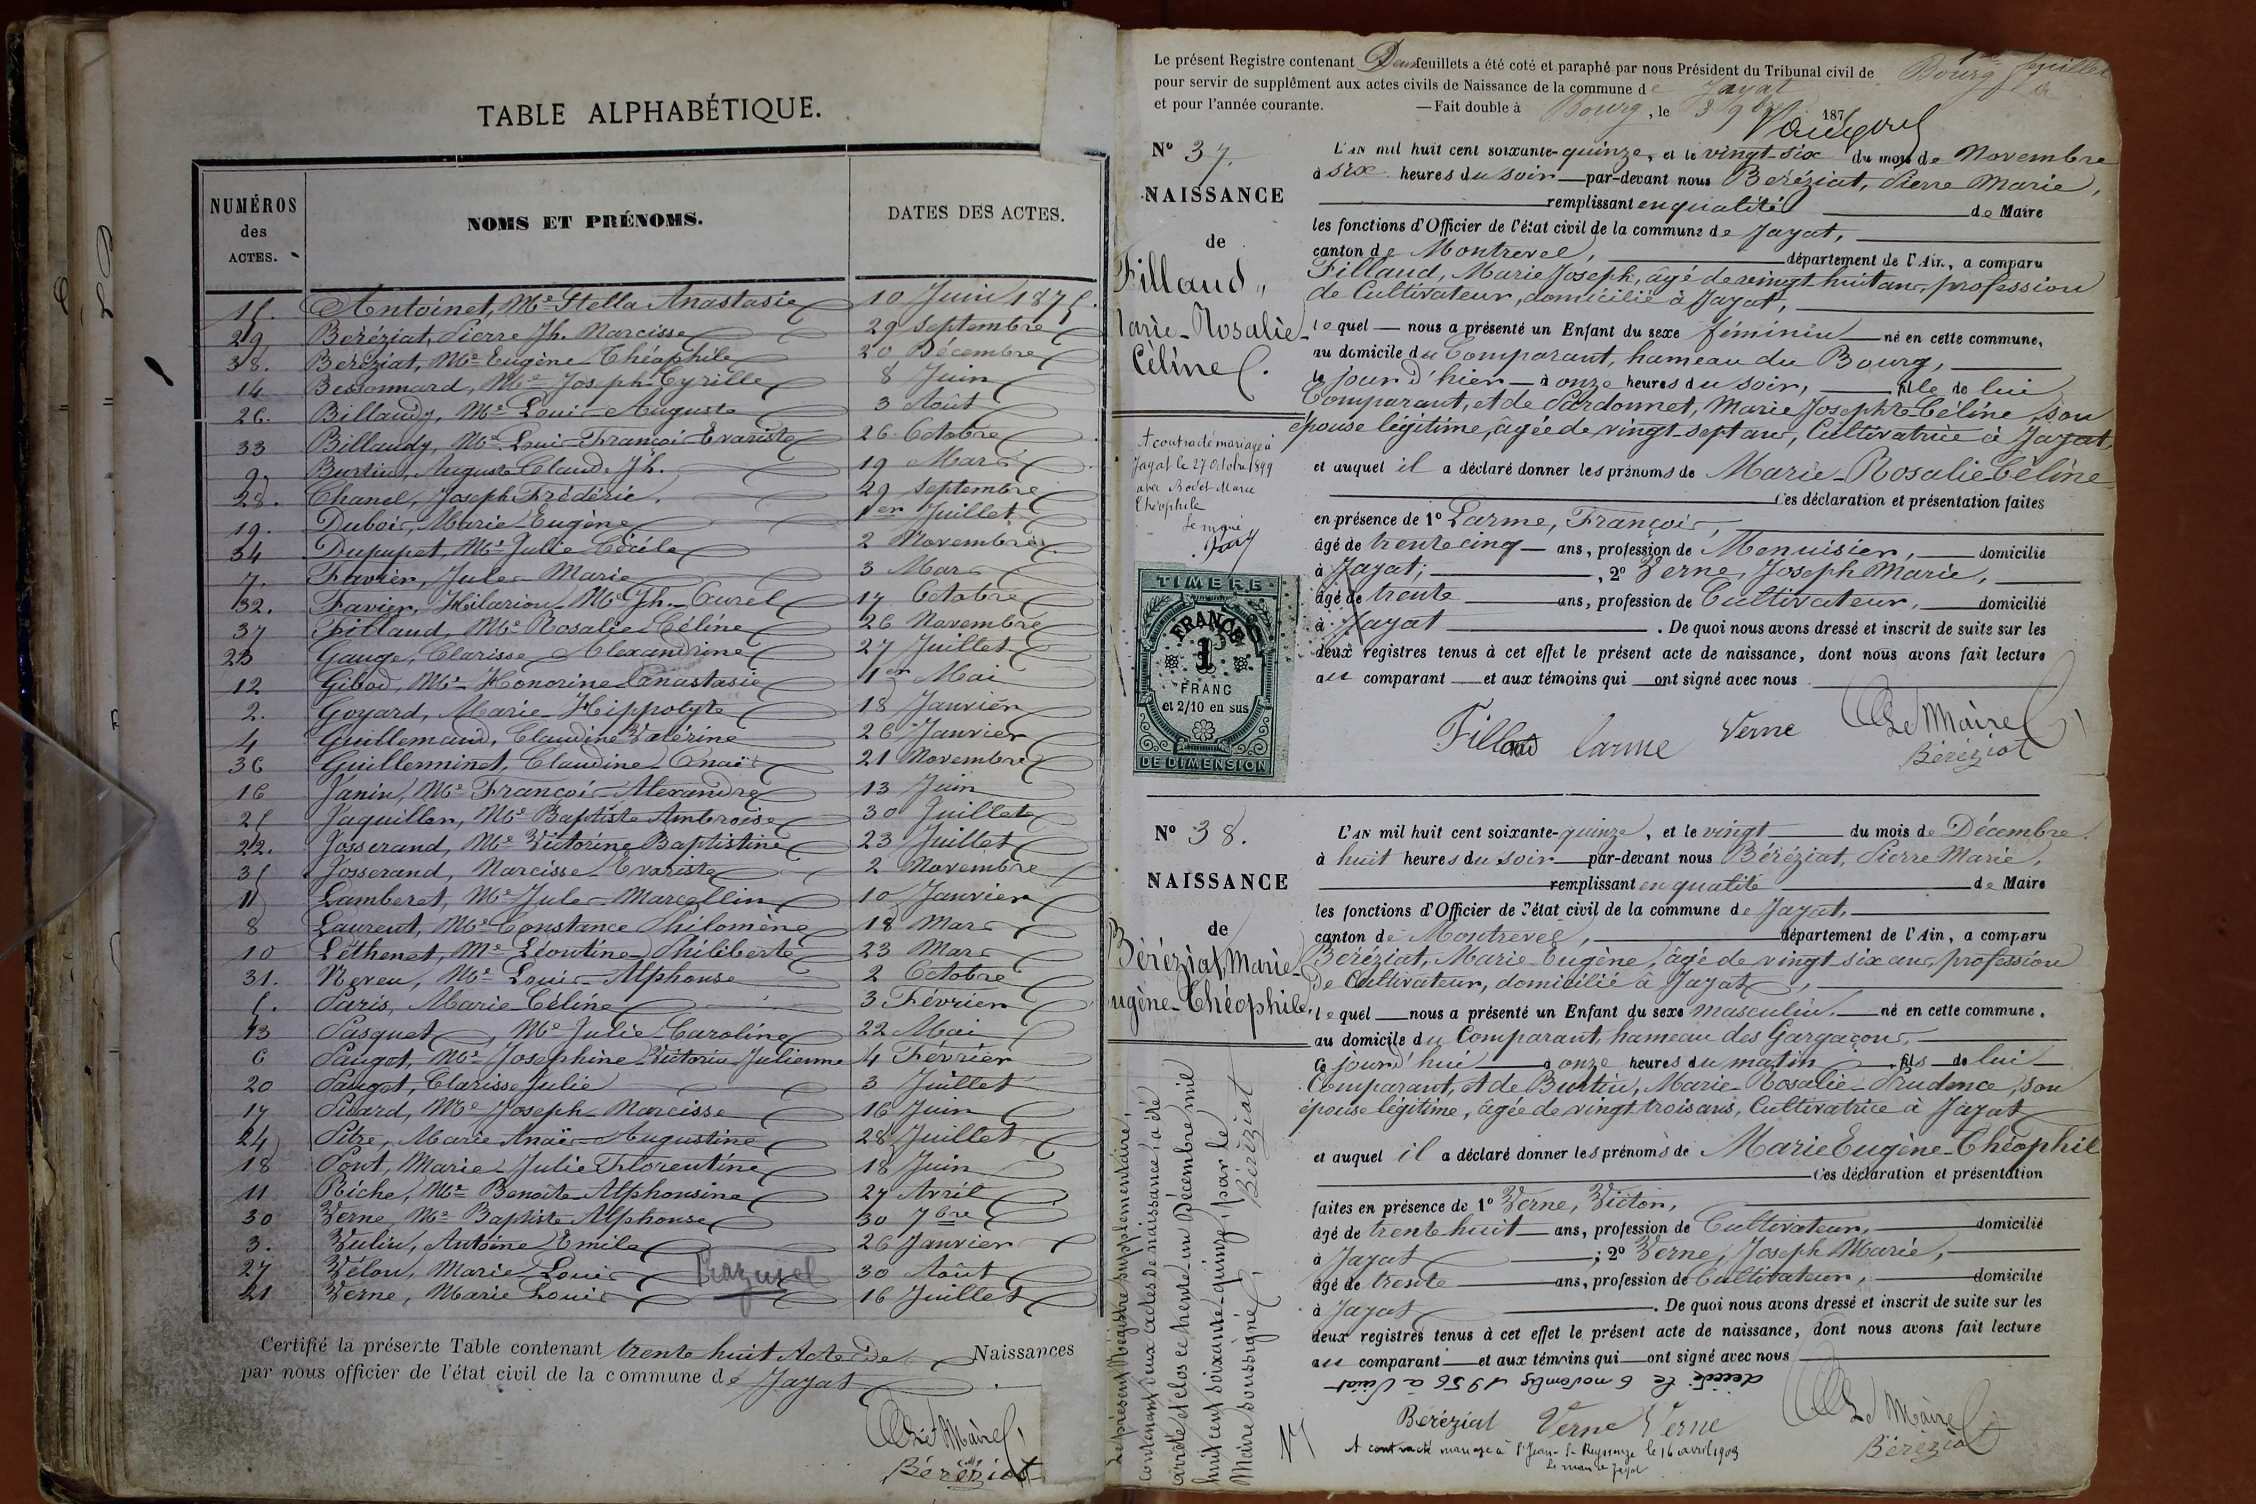 TABLE ALPHABÉTIQUE.
NUMÉROS des ACTES. NOMS ET PRÉNOMS. DATES DES ACTES.
15. Antoinet, Me Stella Anastasie 10 Juin 1875.
29 Beréziat, Pierre Jh. Narcisse 29 Septembre
38. Beréziat, Me Eugène Théophile 20 Décembre
14 Bessonnard, Me Joseph Cyrille 8 Juin
26. Billaudy, Me Louis Auguste 3 Août
33 Billaudy, Me Louis François Evariste 26 Octobre
9. Burtin, Auguste Claude Jh. 19 Mars
28. Chanel, Joseph Frédéric. 29 Septembre
19. Dubois, Marie Eugène 1er Juillet
34 Dupupet, Me Julie Cécile 2 Novembre
7. Favier, Jules Marie 3 Mars
32. Favier, Hilarion Me Jh. Aurel 17 Octobre
37 Fillaud, Me Rosalie Céline 26 Novembre
23 Gauge, Clarisse Alexandrine 27 Juillet
12 Gibod, Me Honorine Anastasie 1er Mai
2. Goyard, Marie Hippolyte 18 Janvier
4 Guillemaud, Claudine Valérine 26 Janvier
36 Guillerminet, Claudine Anaïs 21 Novembre
16 Janin, Me François Alexandre 13 Juin
25 Jaquiller, Me Baptiste Ambroise 30 Juillet
22. Josserand, Me Victorine Baptistine 23 Juillet
35 Josserand, Narcisse Evariste 2 Novembre
1 Lamberet, Me Jules Marcellin 10 Janvier
8 Laurent, Me Constance Philomène 18 Mars
10 Léthenet, Me Léontine Philiberte 23 Mars
31. Neveu, Me Louis Alphonse 2 Octobre
5. Paris, Marie Céline 3 Février
13 Pasquet, Me Julie Caroline 22 Mai
6 Paugot, Me Joséphine Victoria Julienne 4 Février
20 Paugot, Clarisse Julie 3 Juillet
17 Picard, Me Joseph Narcisse 16 Juin
24 Pitre, Marie Anaïs Augustine 28 Juillet
18 Pont, Marie Julie Florentine 18 Juin
11 Riche, Me Benoîte Alphonsine 27 Avril
30 Verne, Me Baptiste Alphonse 30 7bre
3. Vulin, Antoine Emile 26 Janvier
27 Vélon, Marie Louis 30 Août
21 Verne, Marie Louis 16 Juillet
Certifié la présente Table contenant trente huit Actes de Naissances
par nous officier de l'état civil de la commune de Jayat
Le Maire
Béréziat
Le présent Registre contenant Deux feuillets a été coté et paraphé par nous Président du Tribunal civil de Bourg
pour servir de supplément aux actes civils de Naissance de la commune de Jayat
et pour l'année courante. — Fait double à Bourg, le 3 9bre 187
1er feuillet
No 37.
NAISSANCE
de
Fillaud,
Marie-Rosalie-
Céline.
A contracté mariage à
Jayat le 27 Octobre 1899
avec Bodet Marie
Théophile
Le maire
TIMBRE
FRANCE
1
FRANC
et 2/10 en sus
DE DIMENSION
L'AN mil huit cent soixante-quinze, et le vingt-six du mois de Novembre
à six heures du soir par-devant nous Beréziat, Pierre Marie,
remplissant en qualité de Maire
les fonctions d'Officier de l'état civil de la commune de Jayat,
canton de Montrevel, département de l'Ain, a comparu
Fillaud, Marie Joseph, âgé de vingt huit ans, profession
de Cultivateur, domicilié à Jayat,
lequel nous a présenté un Enfant du sexe féminin né en cette commune,
au domicile du Comparant, hameau du Bourg,
le jour d'hier à onze heures du soir, fille de lui
Comparant, et de Pardonnet, Marie Josephte Céline, son
épouse légitime, âgée de vingt-sept ans, Cultivatrice à Jayat,
et auquel il a déclaré donner les prénoms de Marie-Rosalie Céline
Ces déclaration et présentation faites
en présence de 1o Larme, François,
âgé de trente cinq ans, profession de Menuisier, domicilié
à Jayat; , 2o Verne, Joseph Marie,
âgé de trente ans, profession de Cultivateur, domicilié
à Jayat . De quoi nous avons dressé et inscrit de suite sur les
deux registres tenus à cet effet le présent acte de naissance, dont nous avons fait lecture
au comparant et aux témoins qui ont signé avec nous
Fillaud Larme Verne Le Maire
Béréziat
No 38.
NAISSANCE
de
Béréziat, Marie-
Eugène-Théophile.
L'AN mil huit cent soixante-quinze, et le vingt du mois de Décembre
à huit heures du soir par-devant nous Béréziat, Pierre Marie,
remplissant en qualité de Maire
les fonctions d'Officier de l'état civil de la commune de Jayat,
canton de Montrevel, département de l'Ain, a comparu
Béréziat, Marie Eugène, âgé de vingt six ans, profession
De Cultivateur, domicilié à Jayat,
lequel nous a présenté un Enfant du sexe masculin. né en cette commune.
au domicile du Comparant, hameau des Gargaçons,
Ce jourd'hui à onze heures du matin fils de lui
Comparant, et de Burtin, Marie-Rosalie-Prudence, son
épouse légitime, âgée de vingt trois ans, Cultivatrice à Jayat
et auquel il a déclaré donner les prénoms de Marie Eugène-Théophile
Ces déclaration et présentation
faites en présence de 1o Verne, Victor,
âgé de trente huit ans, profession de Cultivateur, domicilié
à Jayat ; 2o Verne, Joseph Marie,
âgé de trente ans, profession de Cultivateur, domicilié
à Jayat . De quoi nous avons dressé et inscrit de suite sur les
deux registres tenus à cet effet le présent acte de naissance, dont nous avons fait lecture
au comparant et aux témoins qui ont signé avec nous
décédé le 6 novembre 1956 à
Béréziat Verne Verne Le Maire
Béréziat
A contracté mariage à St Jean-S-Reyssouze le 16 avril 1903
Le maire Jayat
Le présent Registre supplémentaire,
contenant deux actes de naissance, a été
arrêté et clos ce trente-un Décembre mil
huit cent soixante-quinze, par le
Maire soussigné, Béréziat